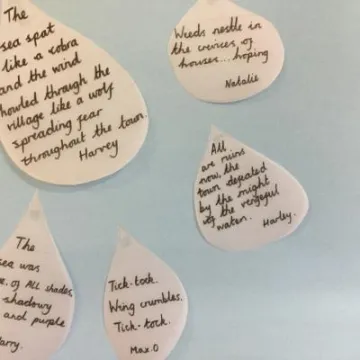 The
sea spat
like a cobra
and the wind
howled through the
village like a wolf
spreading fear
throughout the town.
Harvey
Weeds nestle in
the crevices of
houses... hoping
Natalie
All
are ruins
now, the
town defeated
by the might
of the vengeful
water.
Harley.
The
sea was
of All shades
shadowy
and purple
Harry.
Tick-tock.
Wing crumbles.
Tick-tock.
Max.O